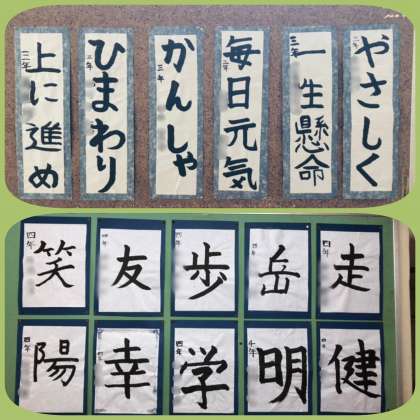 やさしく
三年
一生懸命
毎日元気
三年
かんしゃ
三年
ひまわり
上に進め
四年
走
四年
岳
四年
歩
四年
友
四年
笑
四年
健
明
四年
学
幸
四年
陽